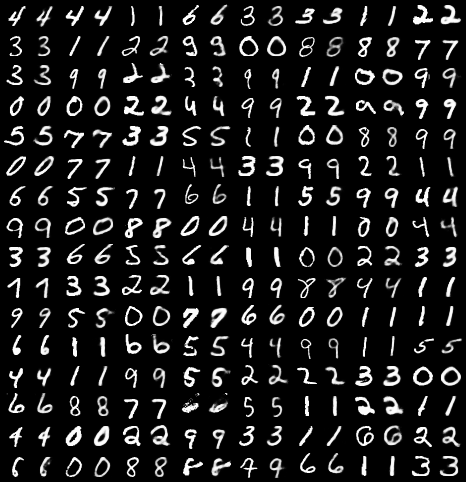 4 4 4 4 1 1 6 6 3 3 3 3 1 1 2 2
3 3 1 1 2 2 9 9 0 0 8 8 8 8 7 7
3 3 9 9 2 2 3 3 9 9 1 1 0 0 9 9
0 0 0 0 2 2 4 4 9 9 2 2 9 9
5 5 7 7 3 3 5 5 1 1 0 0 8 8 9 9
0 0 7 7 1 1 4 4 3 3 9 9 2 2 1 1
6 6 5 5 7 7 6 6 1 1 5 5 9 9 4 4
9 9 0 0 8 8 0 0 4 4 1 1 0 0 4 4
3 3 6 6 5 5 6 6 1 1 0 0 2 2 3 3
1 1 3 3 2 2 1 1 9 9 8 8 4 4 1 1
9 9 5 5 0 0 7 7 6 6 0 0 1 1 1 1
6 6 1 1 6 6 5 5 4 4 9 9 1 1 5 5
4 4 1 1 9 9 5 5 2 2 2 2 3 3 0 0
6 6 8 8 7 7 5 5 1 1 2 2 1 1
4 4 0 0 2 2 9 9 3 3 1 1 6 6 2 2
6 6 0 0 8 8 8 8 9 9 6 6 1 1 3 3